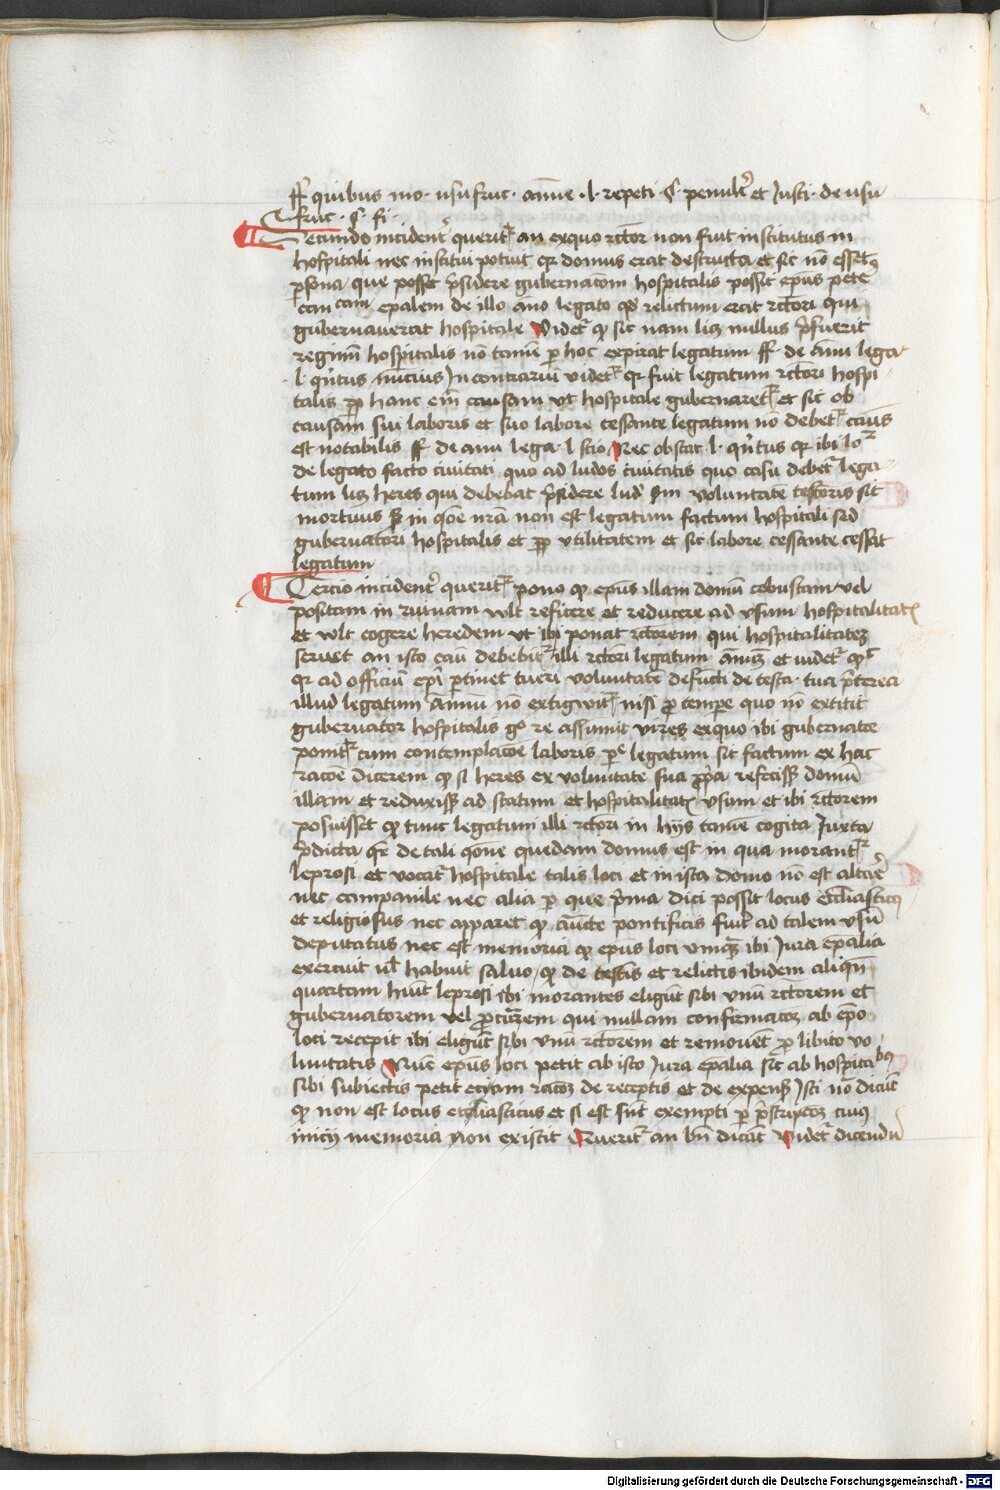 ff quibus mo. usufruc. amitte. l. repeti §. penult̄ et Insti. de usu
fruc. §. fi.
Secundo incident̄ querit̄ an exquo rc̄tor non fuit institutus in
hospitali nec institui potuit qr domus erat destructa et sic nō esset
p̄sona que posset p̄sidere gubernatōm hospitalis possit ep̄us petē
can cam ep̄alem de illo āno legato qd̄ relictum erat rc̄tori qui
gubernauerat hospitale Videt̄ qd̄ sic nam licz nullus p̄fuerit
regimī hospitalis nō tamē p hoc expirat legatum ff. de ānu lega.
l. qūtus mucius In contrariū videt̄ qr fuit legatum rc̄tori hospi
talis pp̄ hanc em̄ causam ut hospitale gubernaret̄ et sic ob
causam sui laboris et suo labore cessante legatum nō debet̄ casus
est notabilis ff de ānu lega. l stio Nec obstat l. qūtus qr ibi lor̄
de legato facto ciuitati quo ad ludos ciuitatis quo casu debet̄ lega
tum licz heres qui debebat p̄sidere lud̄ sm̄ voluntatē testōris sit
mortuus sz in qōe nrā non est legatum factum hospitali sed
gubernatori hospitalis et pp̄ utilitatem et sic labore cessante cessat
legatum
Tercio incident̄ querit̄ pono qd̄ ep̄us illam domū cobustam vel
positam in ruinam vult reficere et reducere ad usum hospitalitat̄
et vult cogere heredem ut ibi ponat rc̄torem qui hospitalitatez
seruet an isto casu debebit̄ illi rc̄tori legatum ānuz et videt̄ qd̄ c
qr ad officiū ep̄i p̄tinet tueri voluntatē defuncti de testa. tua p̄terea
illud legatum ānuū nō extigwit̄ nisi pro tempe quo nō extitit
gubernator hospitalis gº re assumit vires exquo ibi gubernator
ponit̄ cum contemplacōe laboris pc legatum sit factum ex hac
racōe dicerem qd̄ si heres ex voluntate sua pp̄a refecissz domū
illam et reduxissz ad statum et hospitalitat̄ usum et ibi rc̄torem
posuisset qd̄ tunc legatum illi rc̄tori in hijs tamē cogita Iuxta
p̄dicta qr̄ de tali qōne quedam domus est in qua morant̄
leprosi et vocat̄ hospitale talis loci et in ista domo nō est altar̄e
nec companile nec alia p que p̄ma dici possit locus ecclīasticus
et religiosus nec apparet qd̄ auctte pontificis fuit̄ ad talem usū
deputatus nec est memoria qd̄ epus loci umquā ibi Iura ep̄alia
exercuit ul̄ habuit saluo qd̄ de testis et relictis ibidem aliqn̄
quartam huit leprosi ibi morantes eligūt sibi unū rc̄torem et
gubernatorem vel procūrem qui nullam confirmatōz ab epō
loci recepit ibi eligūt sibi unū rc̄torem et remouēt pro libito vo
luntatis Nūc epus loci petit ab isto Iura epalia sic̄ ab hospitalibus
sibi subiectis petit eciam racōz de receptis et de expensz Isti nō dicūt
qd̄ non est locus ecclīasticus et si est sūt exempti p p̄scripcōz cuius
inicij memoria non existit Querit̄ an bn̄ dicāt Videt̄ dicendū
Digitalisierung gefördert durch die Deutsche Forschungsgemeinschaft - DFG